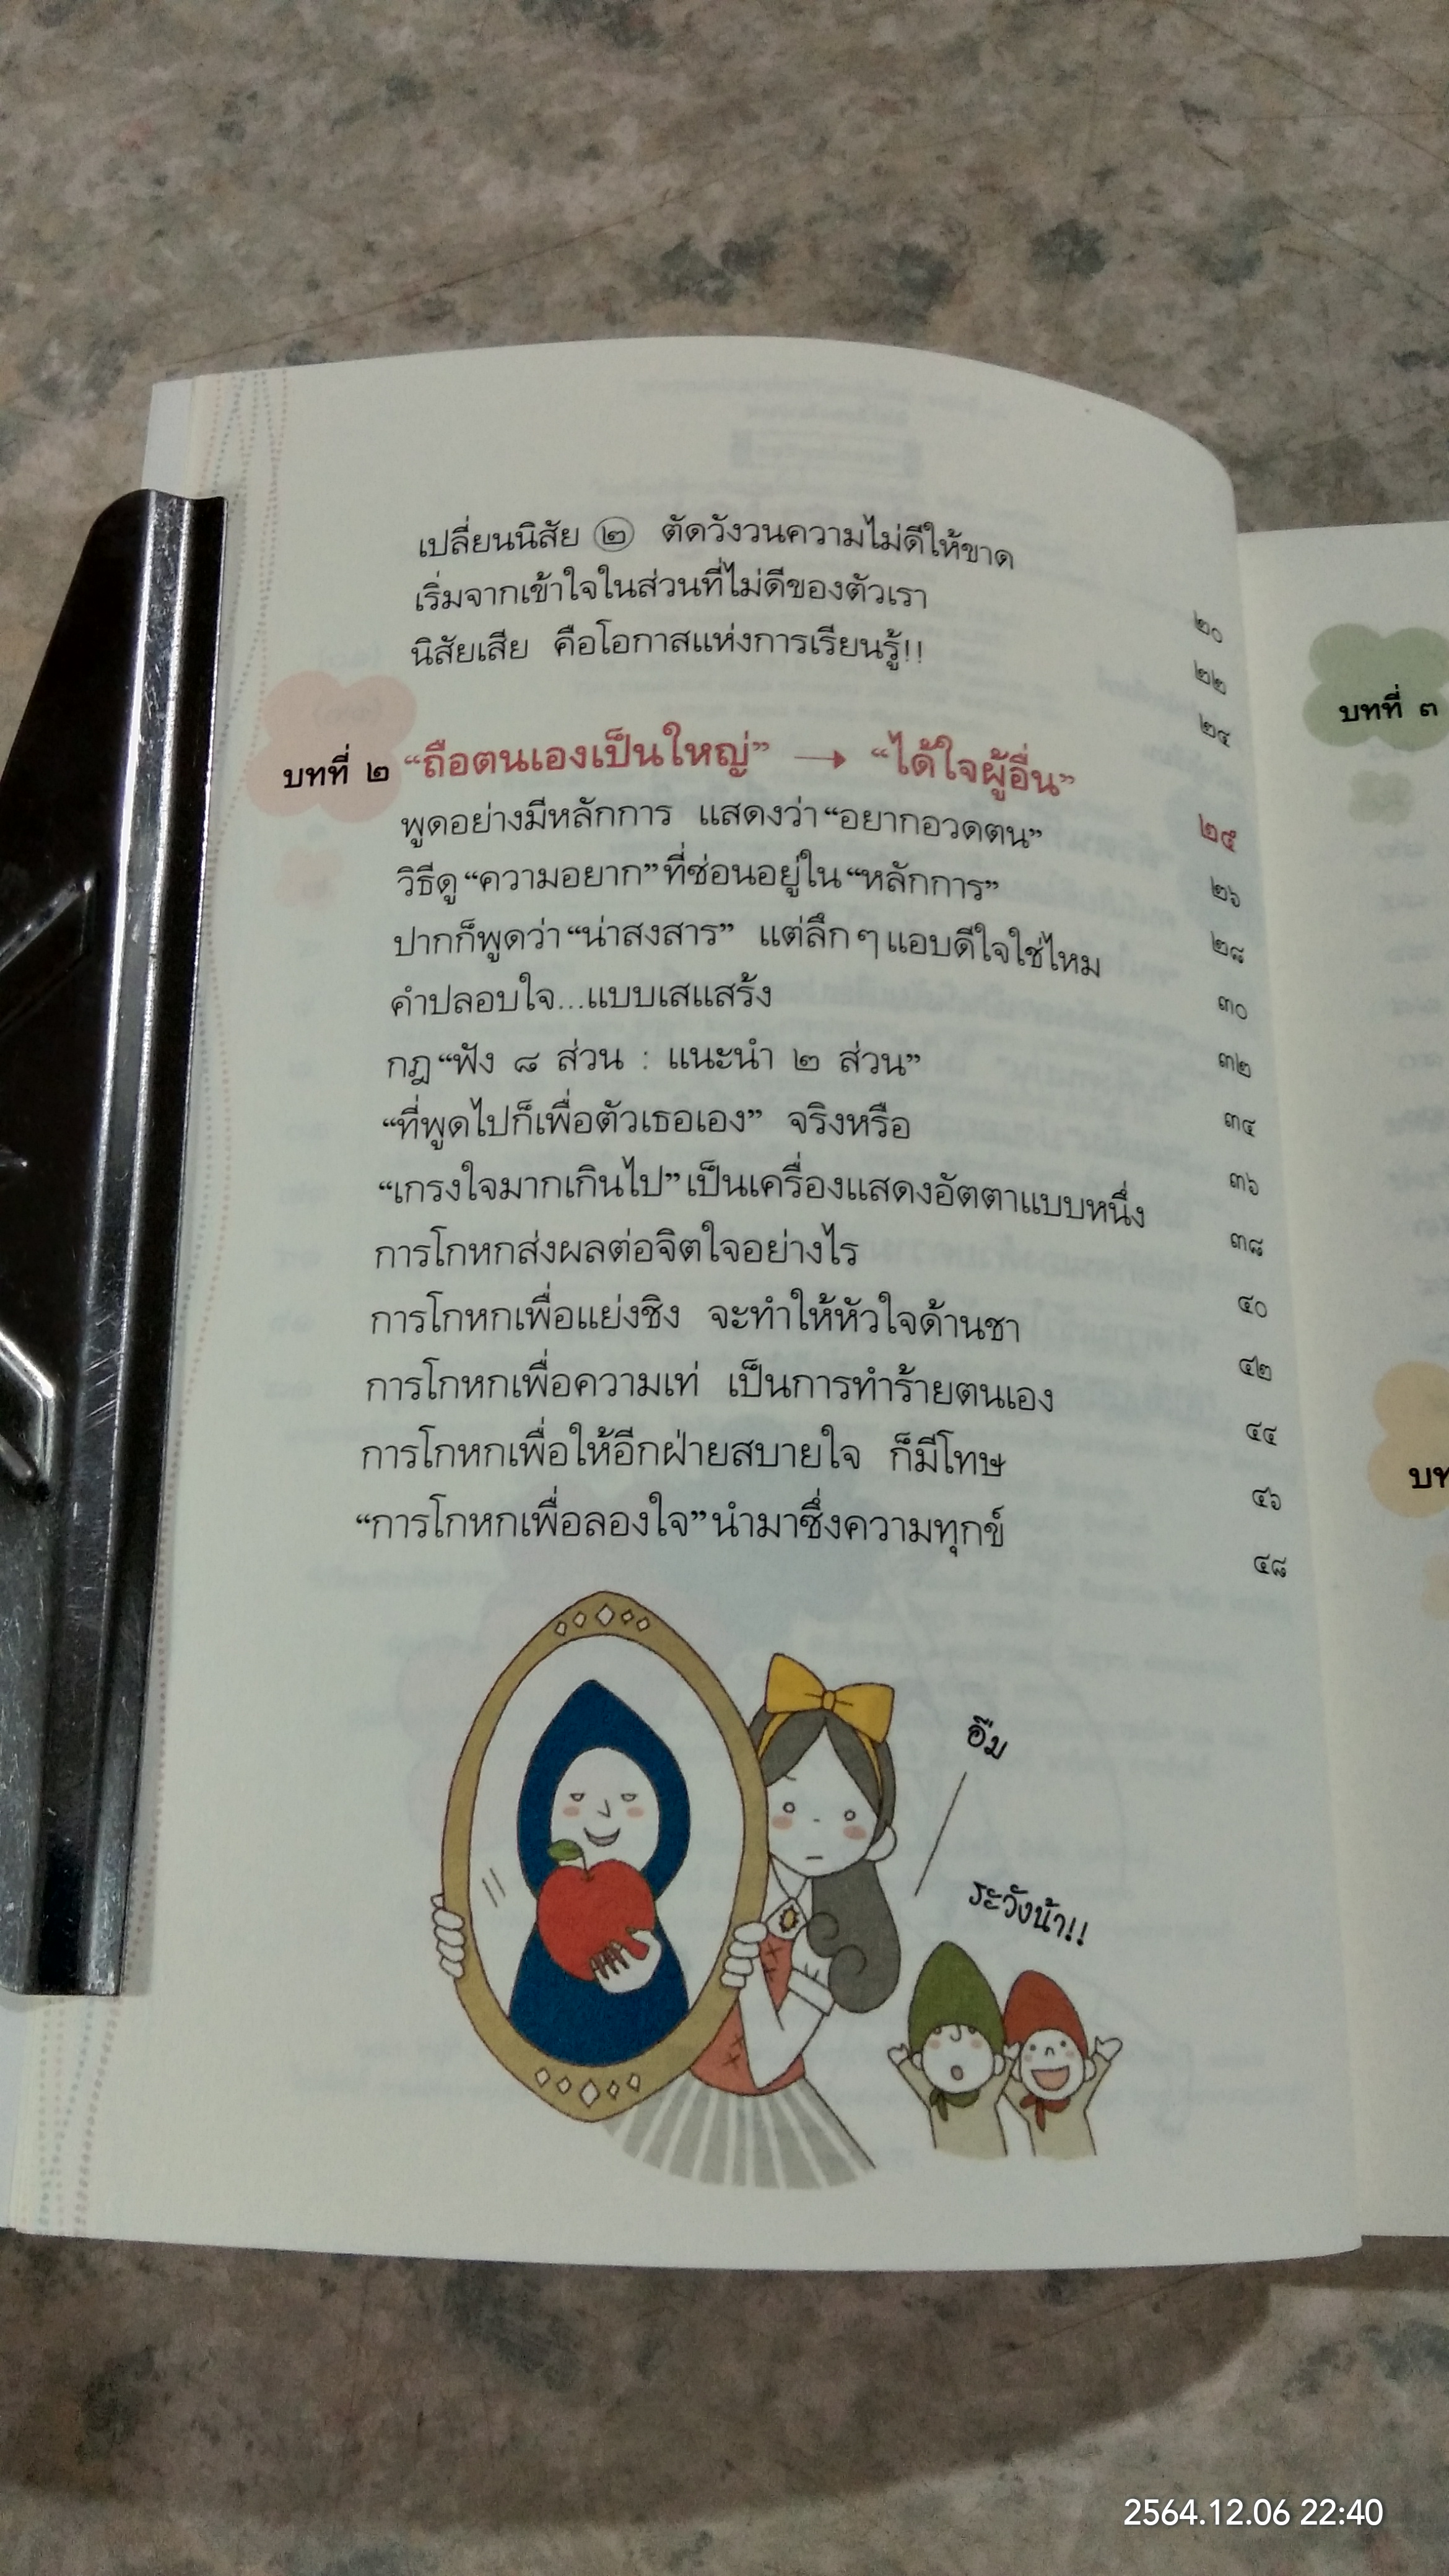 เปลี่ยนนิสัย ๒ ตัดวังวนความไม่ดีให้ขาด ๒๐
เริ่มจากเข้าใจในส่วนที่ไม่ดีของตัวเรา ๒๒
นิสัยเสีย คือโอกาสแห่งการเรียนรู้!! ๒๔
บทที่ ๒ “ถือตนเองเป็นใหญ่” → “ได้ใจผู้อื่น” ๒๕
พูดอย่างมีหลักการ แสดงว่า “อยากอวดตน” ๒๖
วิธีดู “ความอยาก” ที่ซ่อนอยู่ใน “หลักการ” ๒๘
ปากก็พูดว่า “น่าสงสาร” แต่ลึก ๆ แอบดีใจใช่ไหม ๓๐
คำปลอบใจ...แบบเสแสร้ง ๓๒
กฎ “ฟัง ๘ ส่วน : แนะนำ ๒ ส่วน” ๓๔
“ที่พูดไปก็เพื่อตัวเธอเอง” จริงหรือ ๓๖
“เกรงใจมากเกินไป” เป็นเครื่องแสดงอัตตาแบบหนึ่ง ๓๘
การโกหกส่งผลต่อจิตใจอย่างไร ๔๐
การโกหกเพื่อแย่งชิง จะทำให้หัวใจด้านชา ๔๒
การโกหกเพื่อความเท่ เป็นการทำร้ายตนเอง ๔๔
การโกหกเพื่อให้อีกฝ่ายสบายใจ ก็มีโทษ ๔๖
“การโกหกเพื่อลองใจ” นำมาซึ่งความทุกข์ ๔๘
อืม
ระวังน้า!!
บทที่ ๓
2564.12.06 22:40